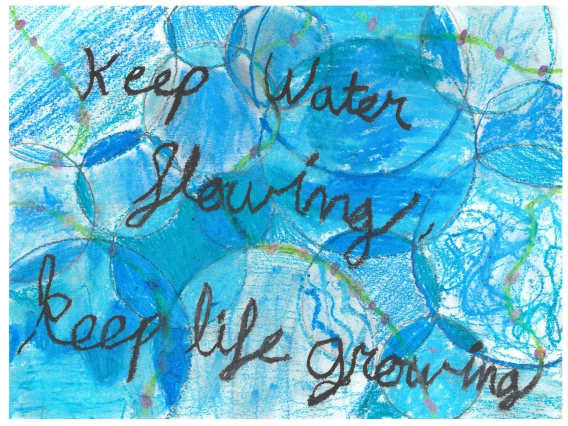 Keep Water
flowing,
keep life growing